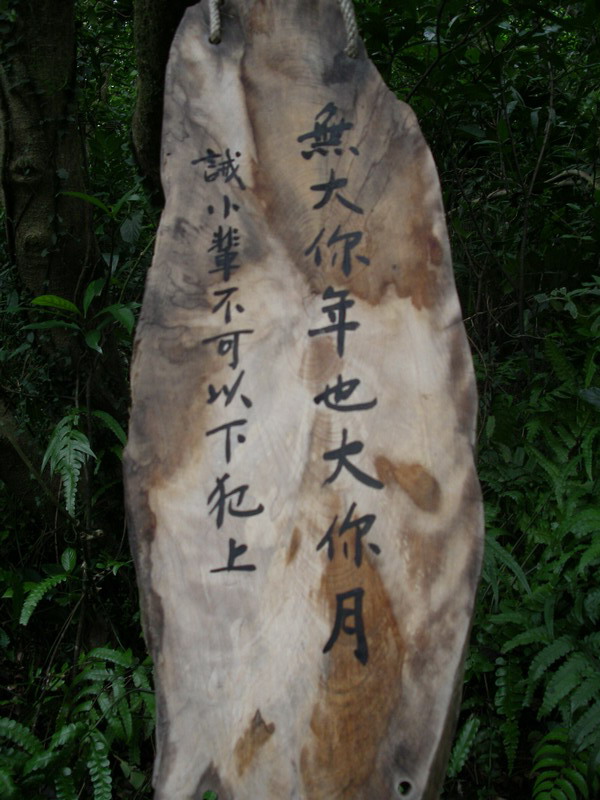 無大你年也大你月
誡小輩不可以下犯上